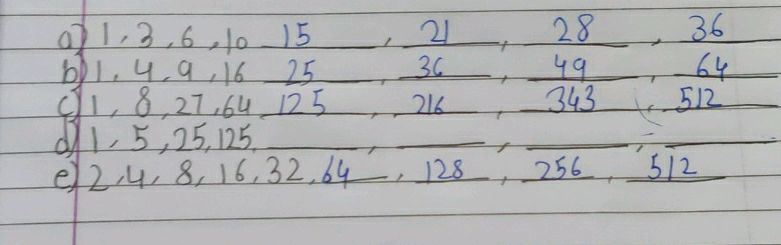 a) 1, 3, 6, 10 15, 21, 28, 36
b) 1, 4, 9, 16 25, 36, 49, 64
c) 1, 8, 27, 64 125, 216, 343, 512
d) 1, 5, 25, 125, ___, ___, ___, ___
e) 2, 4, 8, 16, 32, 64, 128, 256, 512